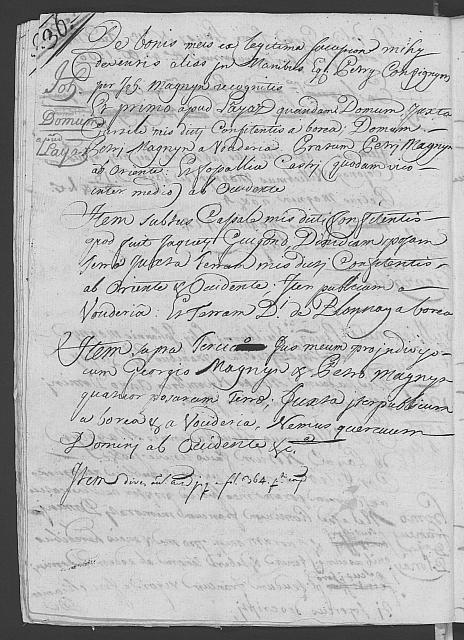 236.
De bonis meis ex legitima successione mihy
devenntis alias in Manibus Egr. Petry
per Joh. Magnyn recognitis
Joh.
Domum
apud
Layaz
Et primo apud Layaz quandam Domum Juxta
Currile mis dicti Confitentis a borea. Domum
Petry Magnyn a Vouderia. Gratum Petri Magnyn
ab Oriente. Et Castri (quodam vico
inter medio) ab Occidente
Item subtus Casale mis dicti Confitentis
quod fuit Jaquety Guigond, Dimidiam posam
Terre Juxta Terram mis dicti Confitentis
ab Oriente & Occidente. Iter publicum a
Vouderia. Et Terram D.i de Blonnay a borea
Item supra Quo meum projndiviso
cum Georgio Magnyn & Petro Magnyn
quatuor posarum Terre, Juxta Iter publicum
a borea & a Vouderia, Nemus quercuum
Dominj ab Occidente &c.
Item fol. 364.